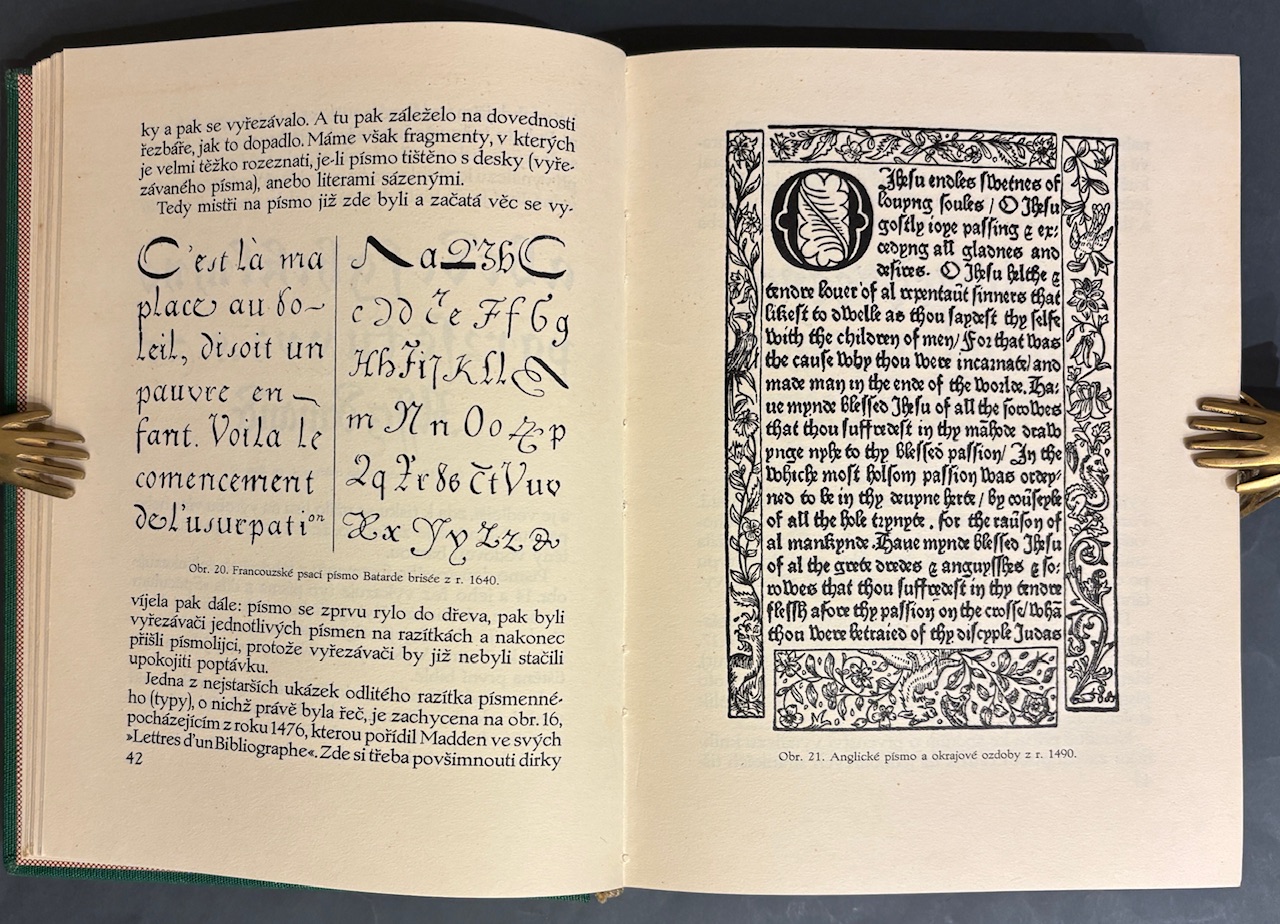 ky a pak se vyřezávalo. A tu pak záleželo na dovednosti
řezbáře, jak to dopadlo. Máme však fragmenty, v kterých
je velmi těžko rozeznati, je-li písmo tištěno s desky (vyře-
závaného písma), anebo literami sázenými.
Tedy mistři na písmo již zde byli a začatá věc se vy-
C'est là ma
place au so-
leil, disoit un
pauvre en-
fant. Voila le
comencement
de l'usurpation
a 2 3 h C
c d d c e F f G g
H h I i j K L l
m N n O o p
2 q r s t V u v
x Y y Z z &
Obr. 20. Francouzské psací písmo Batarde brisée z r. 1640.
víjela pak dále: písmo se zprvu rylo do dřeva, pak byli
vyřezávači jednotlivých písmen na razítkách a nakonec
přišli písmolijci, protože vyřezávači by již nebyli stačili
upokojiti poptávku.
Jedna z nejstarších ukázek odlitého razítka písmenné-
ho (typy), o nichž právě byla řeč, je zachycena na obr. 16,
pocházejícím z roku 1476, kterou pořídil Madden ve svých
»Lettres d'un Bibliographe«. Zde si třeba povšimnouti dírky
42
O Ihesu endles swetnes of
louyng soules / O Ihesu
gostly ioye passing & ex-
cedyng all gladnes and
desires. O Ihesu helthe &
tendre louer of al repentaūt sinners that
likest to dwelle as thou saydest thy selfe
with the children of men / For that was
the cause why thou were incarnate / and
made man in the ende of the worlde. Ha-
ue mynde blessed Ihesu of all the sorowes
that thou suffredest in thy māhode draw
ynge nyhe to thy blessed passion / In the
whiche most holsom passion was ordey-
ned to be in thy deuyne herte / by coūseyle
of all the hole trynyte. for the raūson of
al mankynde. Haue mynde blessed Ihesu
of al the grete dredes & anguysshes & so-
rowes that thou suffredest in thy tendre
flessh afore thy passion on the crosse / whā
thou were betraied of thy discyple Judas
Obr. 21. Anglické písmo a okrajové ozdoby z r. 1490.